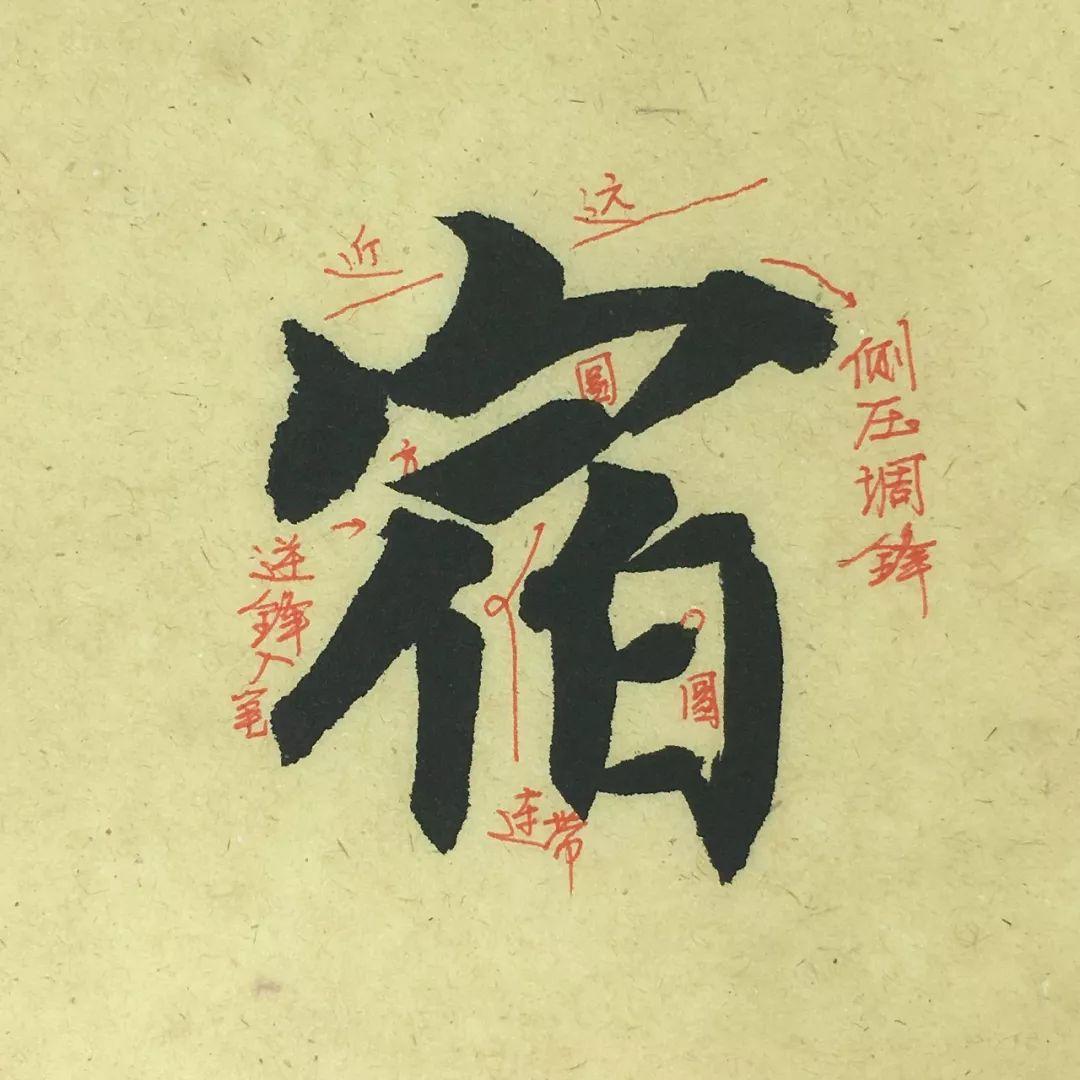 宿
近
远
侧压调锋
圆
方
逆锋入笔
圆
连带